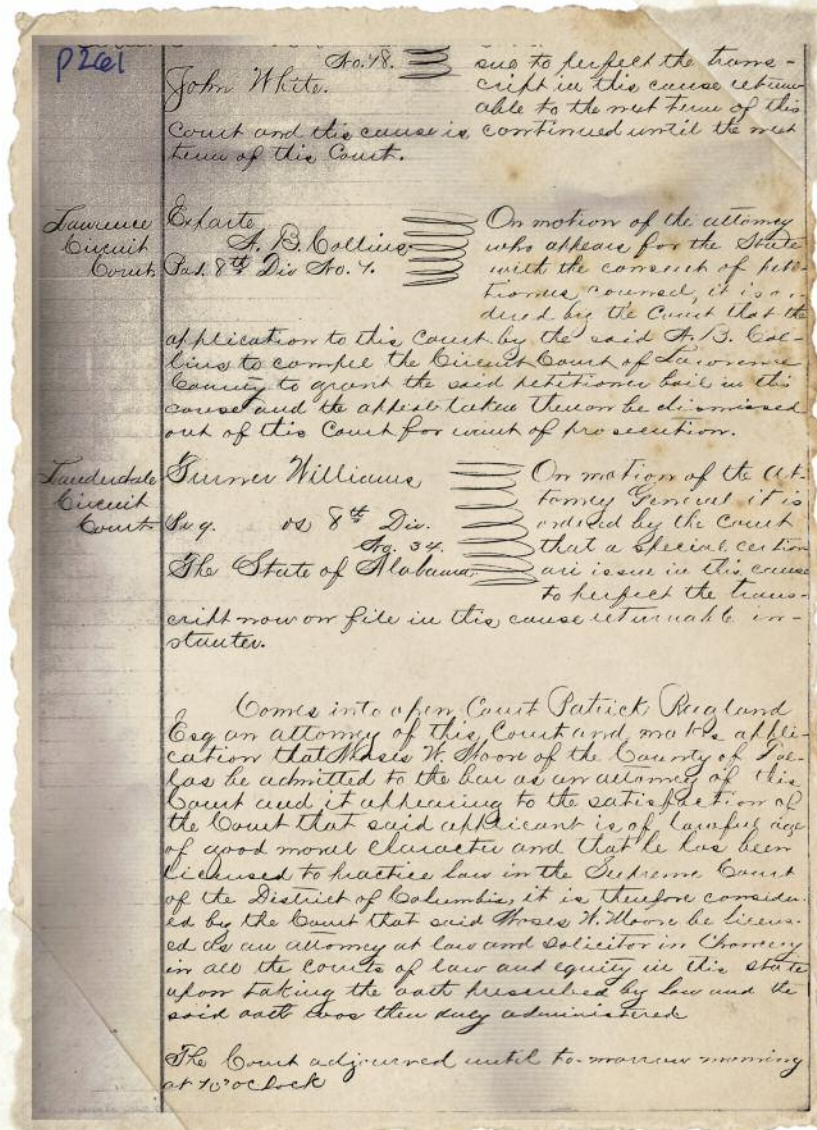 p261
No. 78.
John White.
sue to perfect the trans-
cript in this cause return
able to the next term of this
Court and this cause is continued until the next
term of this Court.
Lawrence
Circuit
Court
Exparte
A. B. Collins.
8th Div No. 7.
On motion of the attorney
who appears for the State
with the consent of peti-
tioners counsel, it is or-
dered by the Court that the
application to this Court by the said A. B. Col-
lins to compel the Circuit Court of Lawrence
County to grant the said petitioner bail in this
cause and the appeal taken thereon be dismissed
out of this Court for want of prosecution.
Lauderdale
Circuit
Court
Turner Williams
vs 8th Div.
No. 34.
The State of Alabama.
On motion of the At-
torney General it is
ordered by the Court
that a special certior
ari issue in this cause
to perfect the trans-
cript now on file in this cause returnable in-
stanter.
Comes into open Court Patrick Ragland
Esq an attorney of this Court and makes appli-
cation that Moses W. Moore of the County of Dal-
las be admitted to the bar as an attorney of this
Court and it appearing to the satisfaction of
the Court that said applicant is of lawful age
of good moral character and that he has been
licensed to practice law in the Supreme Court
of the District of Columbia, it is therefore consider-
ed by the Court that said Moses W. Moore be licens-
ed as an attorney at law and solicitor in Chancery
in all the courts of law and equity in this state
upon taking the oath prescribed by law and the
said oath was then duly administered
The Court adjourned until to-morrow morning
at 10 oclock